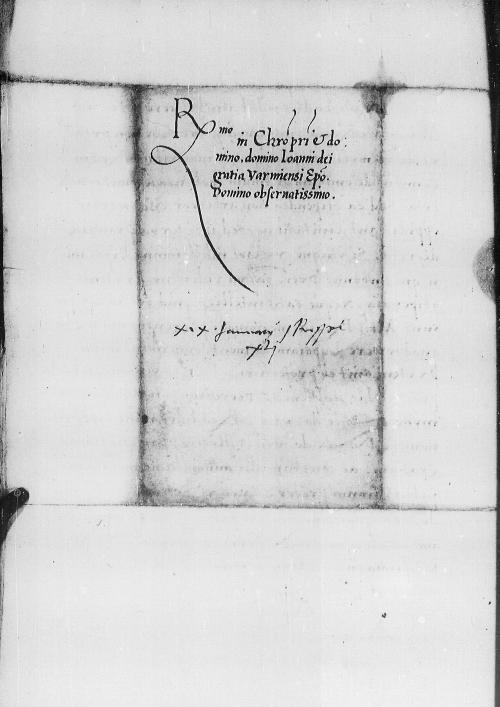 Rmo
in Chro pri & do:
mino, domino Ioanni dei
gratia Varmiensi Epo.
Domino obseruatissimo.
xix Januarij